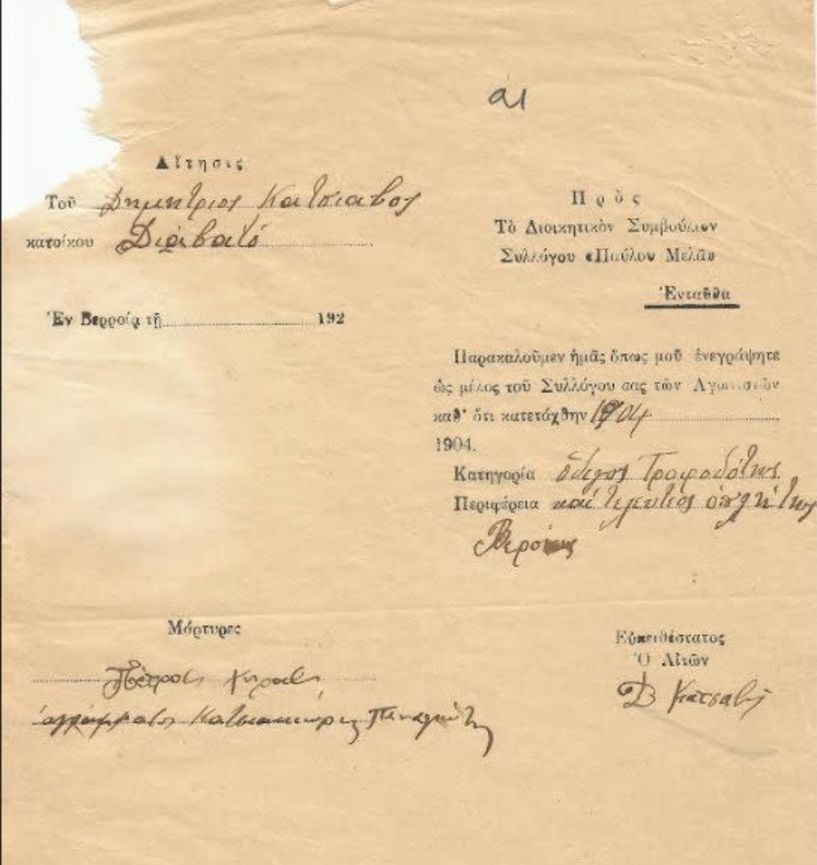 αι
Αἴτησις
Τοῦ Δημητριος Κατσιαβος
κατοίκου Διαβατό
Ἐν Βερροίᾳ τῇ 192
Πρὸς
Τὸ Διοικητικὸν Συμβούλιον
Συλλόγου «Παῦλον Μελᾶ»
Ἐνταῦθα
Παρακαλοῦμεν ἡμᾶς ὅπως μοῦ ἐνεγράψητε
ὡς μέλος τοῦ Συλλόγου σας τῶν Ἀγωνιστῶν
καθ' ὅτι κατετάχθην 1904
1904.
Κατηγορία ὁδιγος Τροφοδότης
Περιφέρεια καί τελευτέος ὁπλήτης
Βεροίας
Μάρτυρες
Πέτρος
Εὐπειθέστατος
Ὁ Αἰτῶν
Δ Κατσαβός